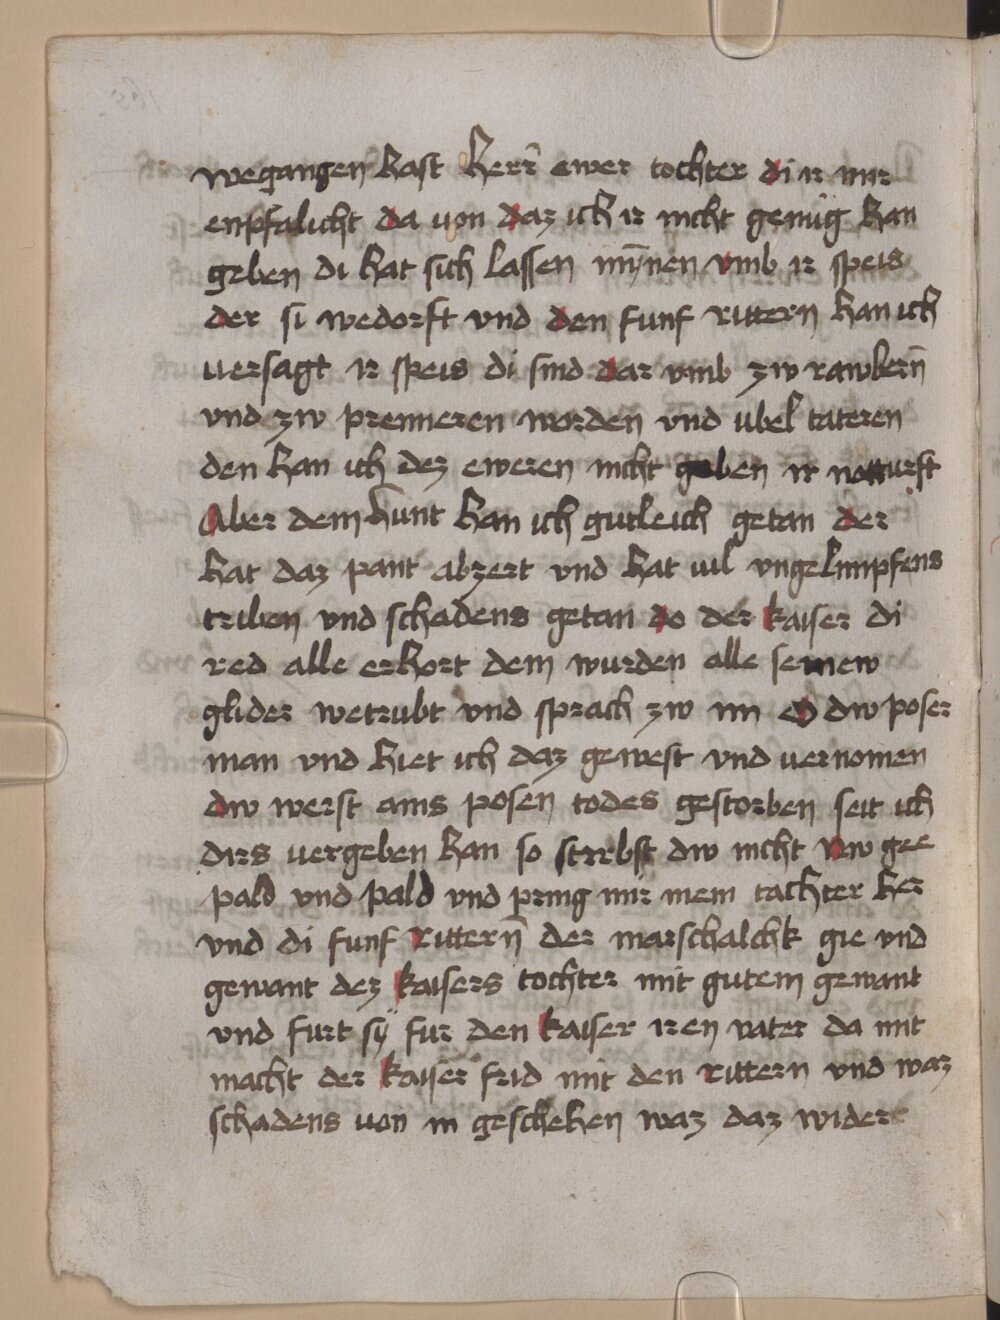 wegangen hast herr̄ ewer tochter di ir mir
enpfalicht da von daz ich ir nicht genug han
geben di hat sich lassen mȳnen vmb ir speis
der si wedorft vnd den funf rittern han ich
versagt ir speis di sind dar vmb zw rawbern̄
vnd zw prenneren worden vnd ubel tateren
den han ich dez eweren nicht geben ir notturft
Aber dem hunt han ich gutleich getan der
hat daz pant abzert vnd hat uil vngelimpfens
triben vnd schadens getan do der kaiser di
red alle erhort dem wurden alle seinew
glider wetrubt vnd sprach zw im O dw poser
man vnd hiet ich daz gewest vnd uernomen
dw werst ains posen todes gestorben seit ich
dirs uergeben han so stirbst dw nicht Nw gee
pald vnd pald vnd pring mir mein tachter her
vnd di funf Rittern̄ der marschalchk gie vnd
gewant dez kaisers tochter mit gutem gewant
vnd furt sÿ fur den kaiser iren vater da mit
macht der kaiser frid mit den rittern vnd waz
schadens uon in geschehen waz daz wider